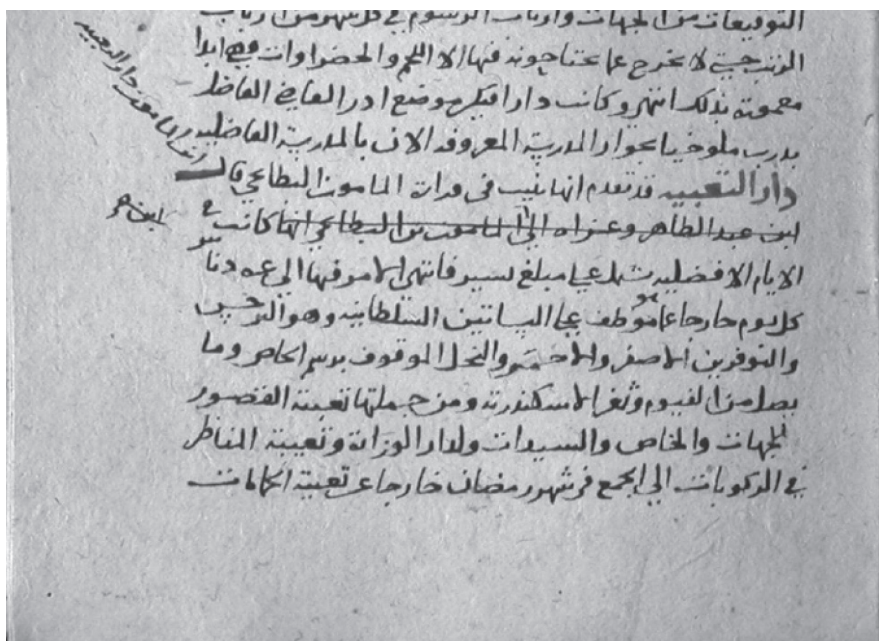 التوقيعات من الجهات وأرباب الرسوم في كل شهر من أرباب
الرتب حتى لا يخرج عما يحتاجونه فيها إلا اللحم والخضراوات فهي أبدا
معمورة بذلك انتهى وكانت دار افتكين موضع ادر القاضي الفاضل
بدرب ملوخيا بجوار المدرسة المعروفة الآن بالمدرسة الفاضلية
دار التعبية قد تقدم انها بنيت في وزارة المامون البطائحي قال
ابن عبد الظاهر وعزاه الى المامون بن البطائحي انها كانت في
الايام الافضلية تشتمل على مبلغ يسير فانتهى الامر فيها الى عشرة دنانير
كل يوم خارجا عما هو موظف على البساتين السلطانية وهو النرجس
والنوفرين الاصفر والاحمر والنخل الموقوف برسم الخاص وما
يصل من الفيوم وثغر الاسكندرية ومن جملتها تعبية القصور
للجهات والخاص والسيدات ولدار الوزارة وتعبية المناظر
في الركوبات الى الجمع في شهر رمضان خارجا عن تعبية الحمامات
دار التعبية